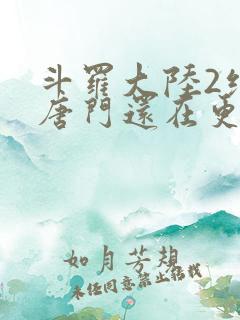 斗羅大陸2
唐門還在更
如月芳想
未经同意禁止